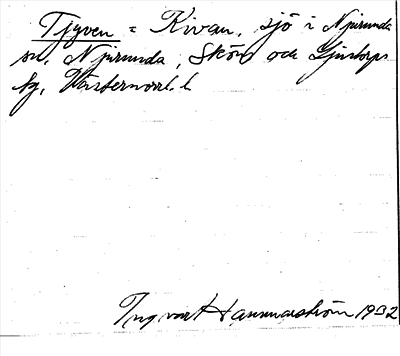 Tjyven = Kivan, sjö i Njurunda
sn, Njurunda, Sköns och Ljustorps
tg, Västernorrl. l
Ingvar Hammarström 1932